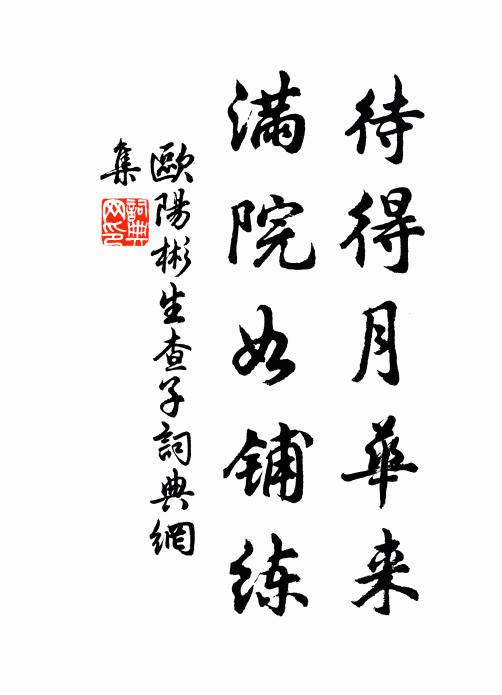 待得月華来
满院如铺练
歐陽彬生查子詞典網
集
詞典
网印